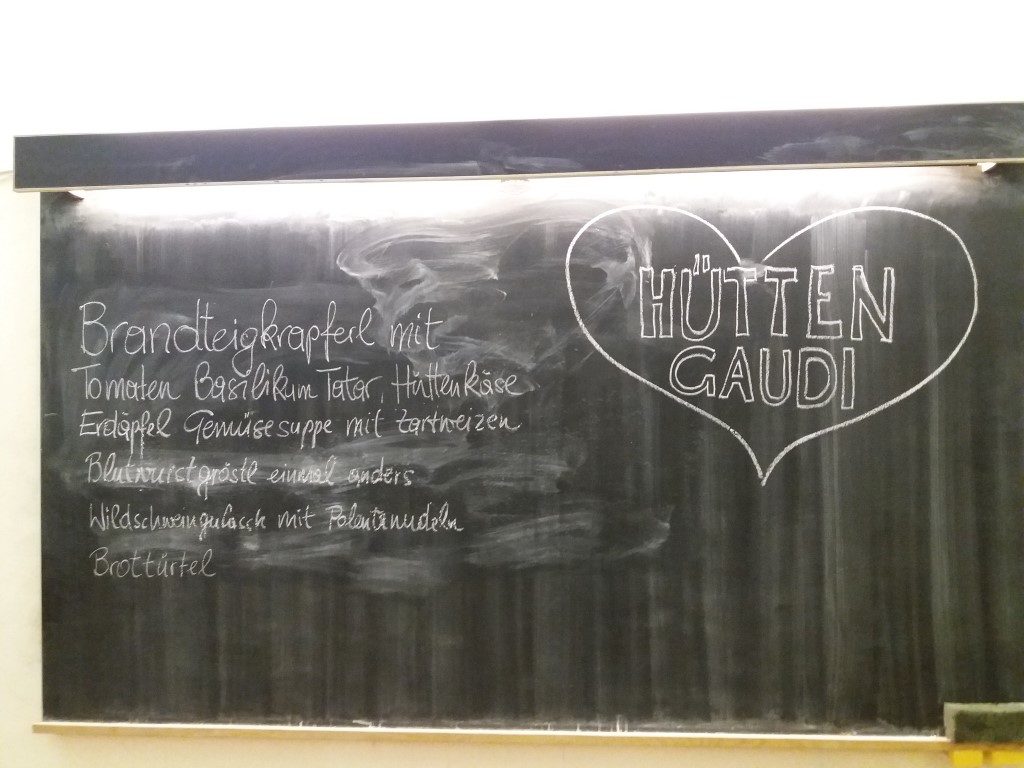 Brandteigkrapferl mit
Tomaten Basilikum Tatar, Hüttenkäse
Erdäpfel Gemüsesuppe mit Zartweizen
Blutwurstgröstl einmal anders
Wildschweingulasch mit Polentanudeln
Brottürtel
HÜTTEN
GAUDI